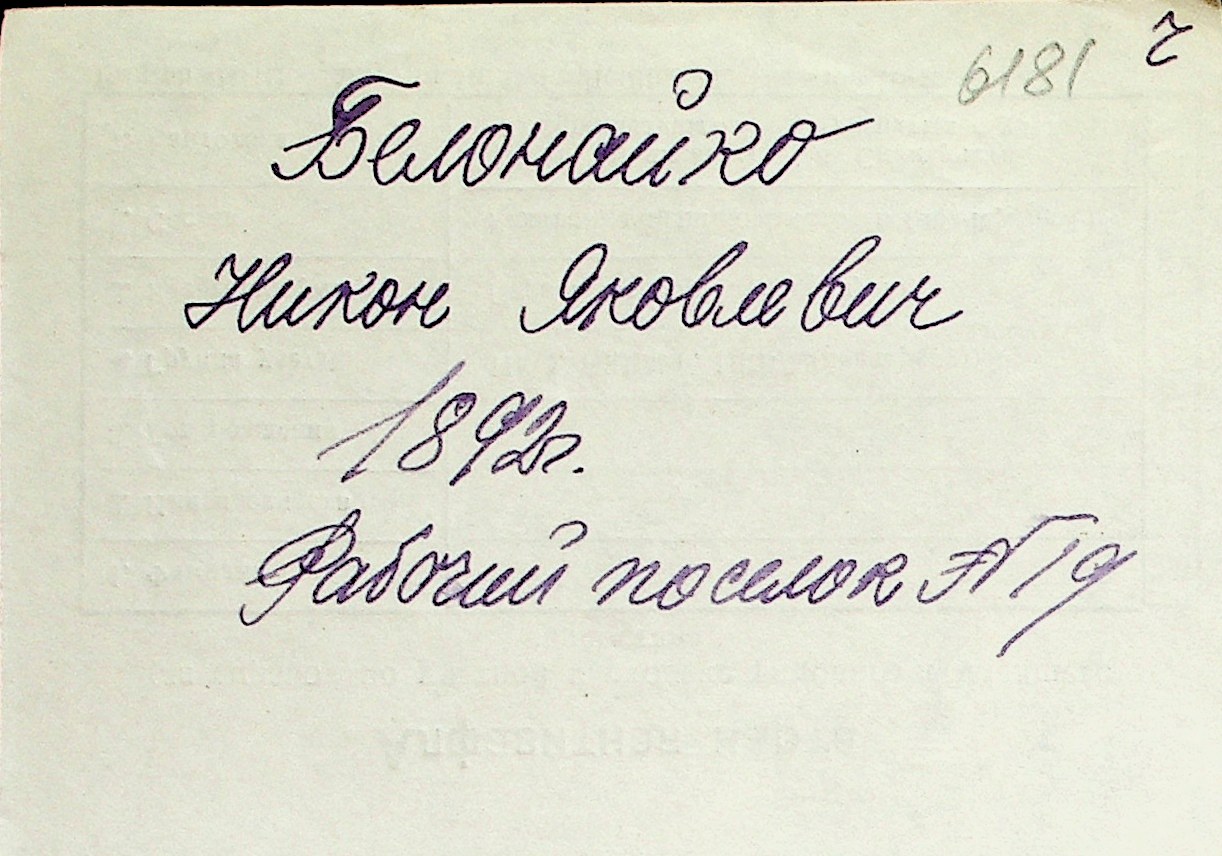 6181 ч
Белонайко
Никон Яковлевич
1892г.
Рабочий поселок №19